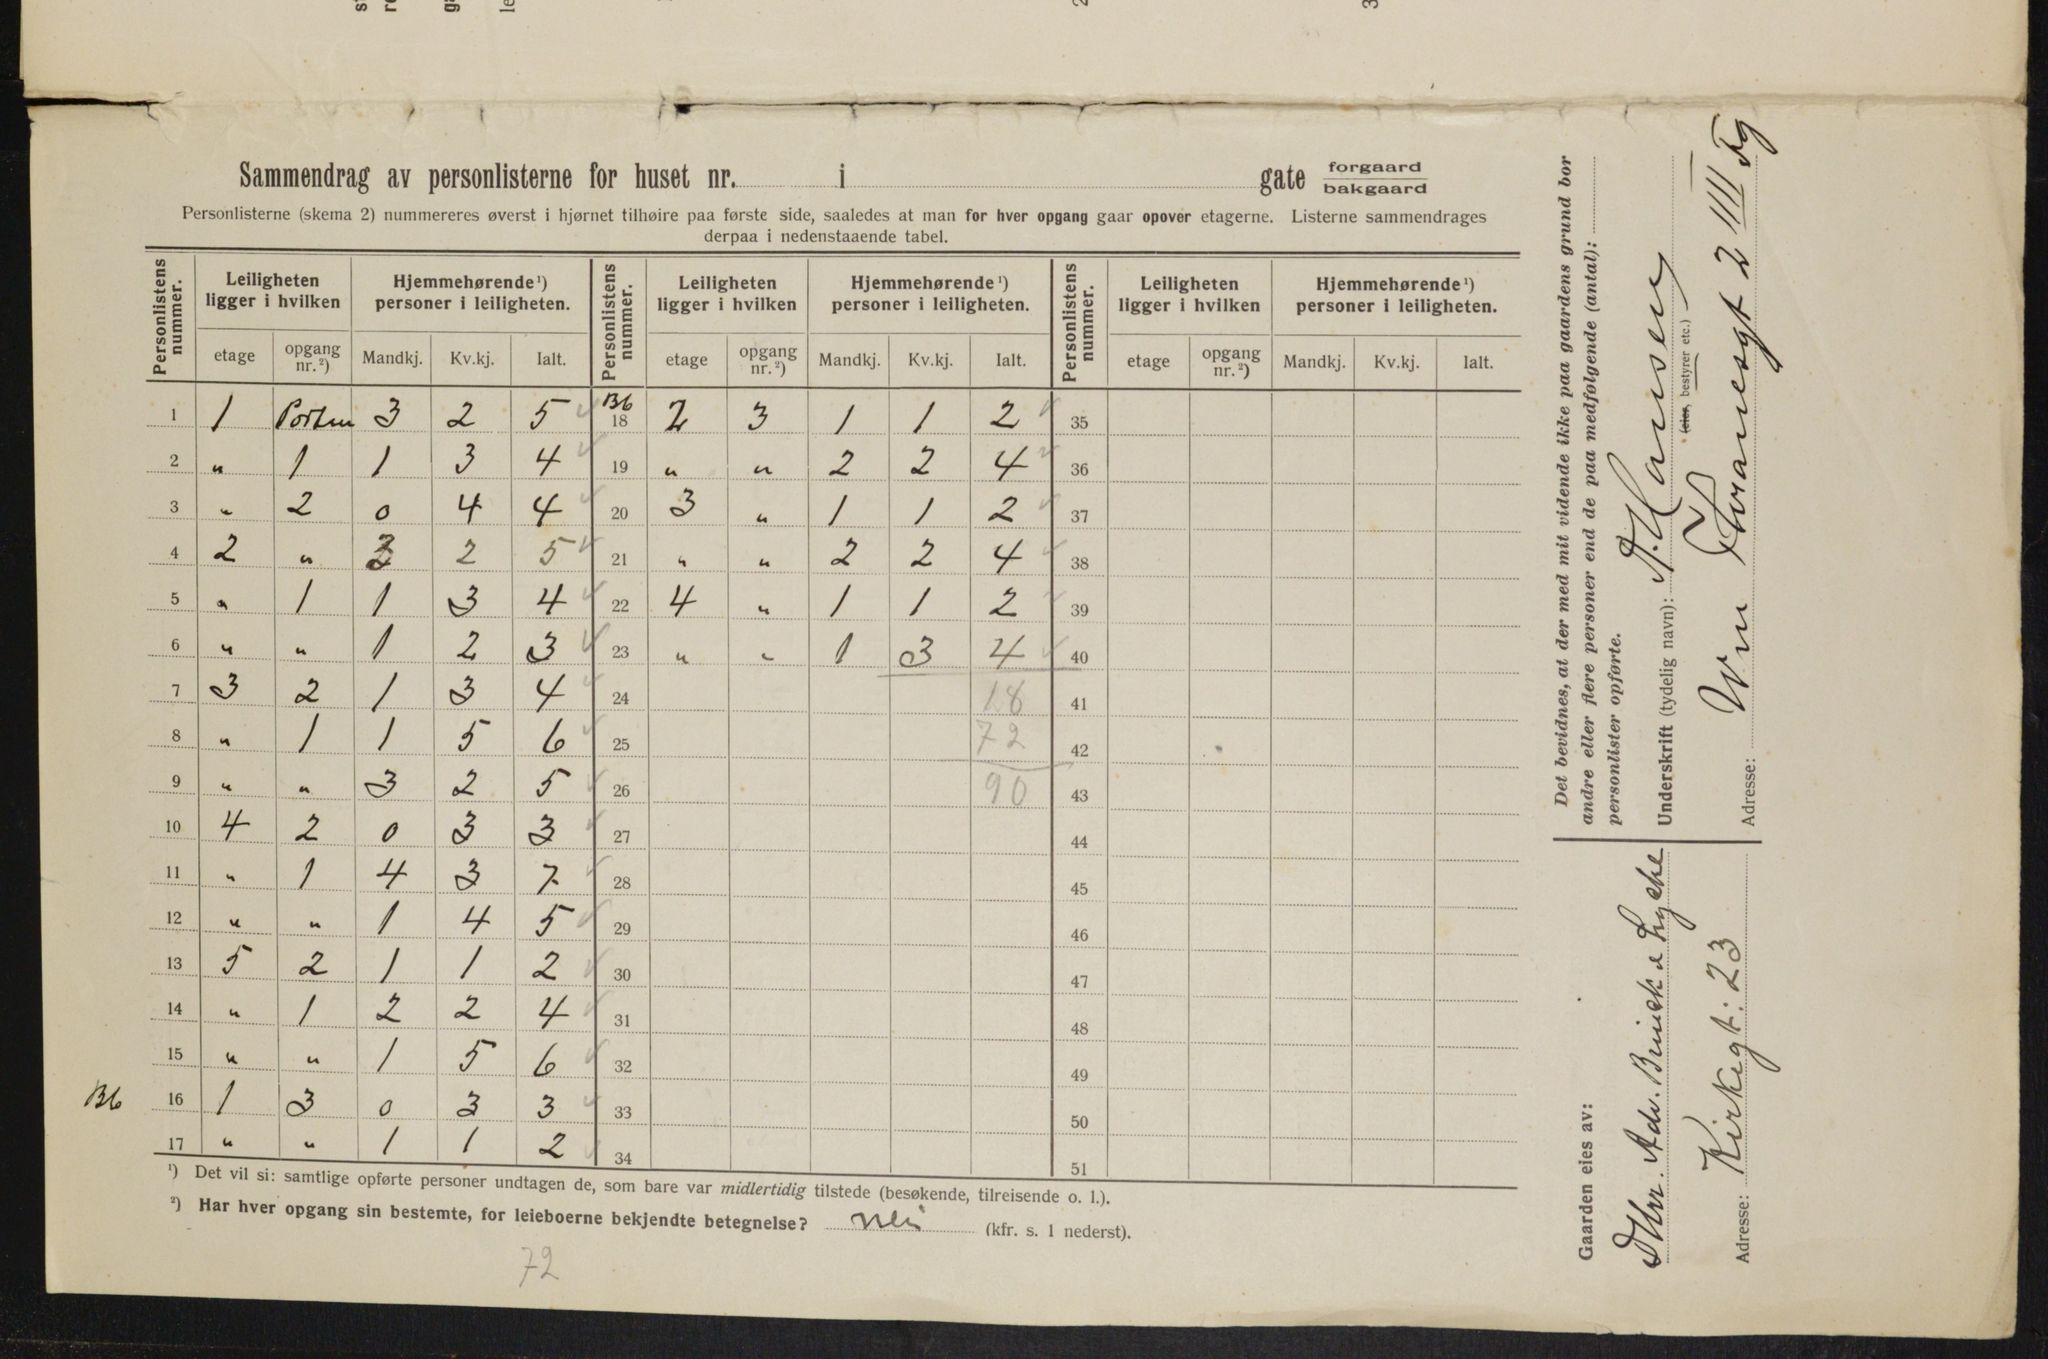 Sammendrag av personlisterne for huset nr. i gate forgaard
bakgaard
Personlisterne (skema 2) nummereres øverst i hjørnet tilhøire paa første side, saaledes at man for hver opgang gaar opover etagerne. Listerne sammendrages
derpaa i nedenstaaende tabel.
Personlistens nummer. Leiligheten ligger i hvilken Hjemmehørende ¹) personer i leiligheten. Personlistens nummer. Leiligheten ligger i hvilken Hjemmehørende ¹) personer i leiligheten. Personlistens nummer. Leiligheten ligger i hvilken Hjemmehørende ¹) personer i leiligheten.
etage opgang nr. ²) Mandkj. Kv.kj. Ialt. etage opgang nr. ²) Mandkj. Kv.kj. Ialt. etage opgang nr. ²) Mandkj. Kv.kj. Ialt.
1 1 Porten 3 2 5 Bb 18 2 3 1 1 2 35
2 " 1 1 3 4 19 " " 2 2 4 36
3 " 2 0 4 4 20 3 " 1 1 2 37
4 2 " 3 2 5 21 " " 2 2 4 38
5 " 1 1 3 4 22 4 " 1 1 2 39
6 " " 1 2 3 23 " " 1 3 4 40
7 3 2 1 3 4 24 18 41
8 " 1 1 5 6 25 72 42
9 " " 3 2 5 26 90 43
10 4 2 0 3 3 27 44
11 " 1 4 3 7 28 45
12 " " 1 4 5 29 46
13 5 2 1 1 2 30 47
14 " 1 2 2 4 31 48
15 " " 1 5 6 32 49
Bb 16 1 3 0 3 3 33 50
17 " " 1 1 2 34 51
¹) Det vil si: samtlige opførte personer undtagen de, som bare var midlertidig tilstede (besøkende, tilreisende o. l.).
²) Har hver opgang sin bestemte, for leieboerne bekjendte betegnelse? Nei (kfr. s. 1 nederst).
72
Det bevidnes, at der med mit vidende ikke paa gaardens grund bor
andre eller flere personer end de paa medfølgende (antal):
personlister opførte.
Underskrift (tydelig navn): A. Hansen
(eier, bestyrer etc.)
Adresse: Vm Thranesgt 2 III
Gaarden eies av:
Dhrr. Adv. Brinck & Lycke
Adresse: Kirkegt: 23